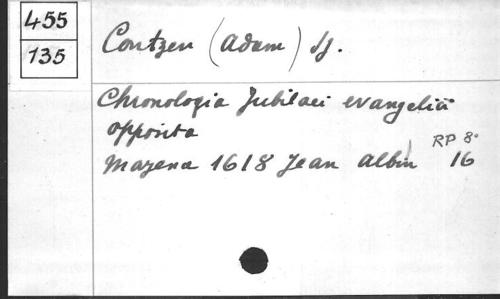 455
135
Contzen (Adam) Sj.
Chronologia Jubilaei evangelici
opposita
Mazena 1618 Jean Albin
RP 8°
16